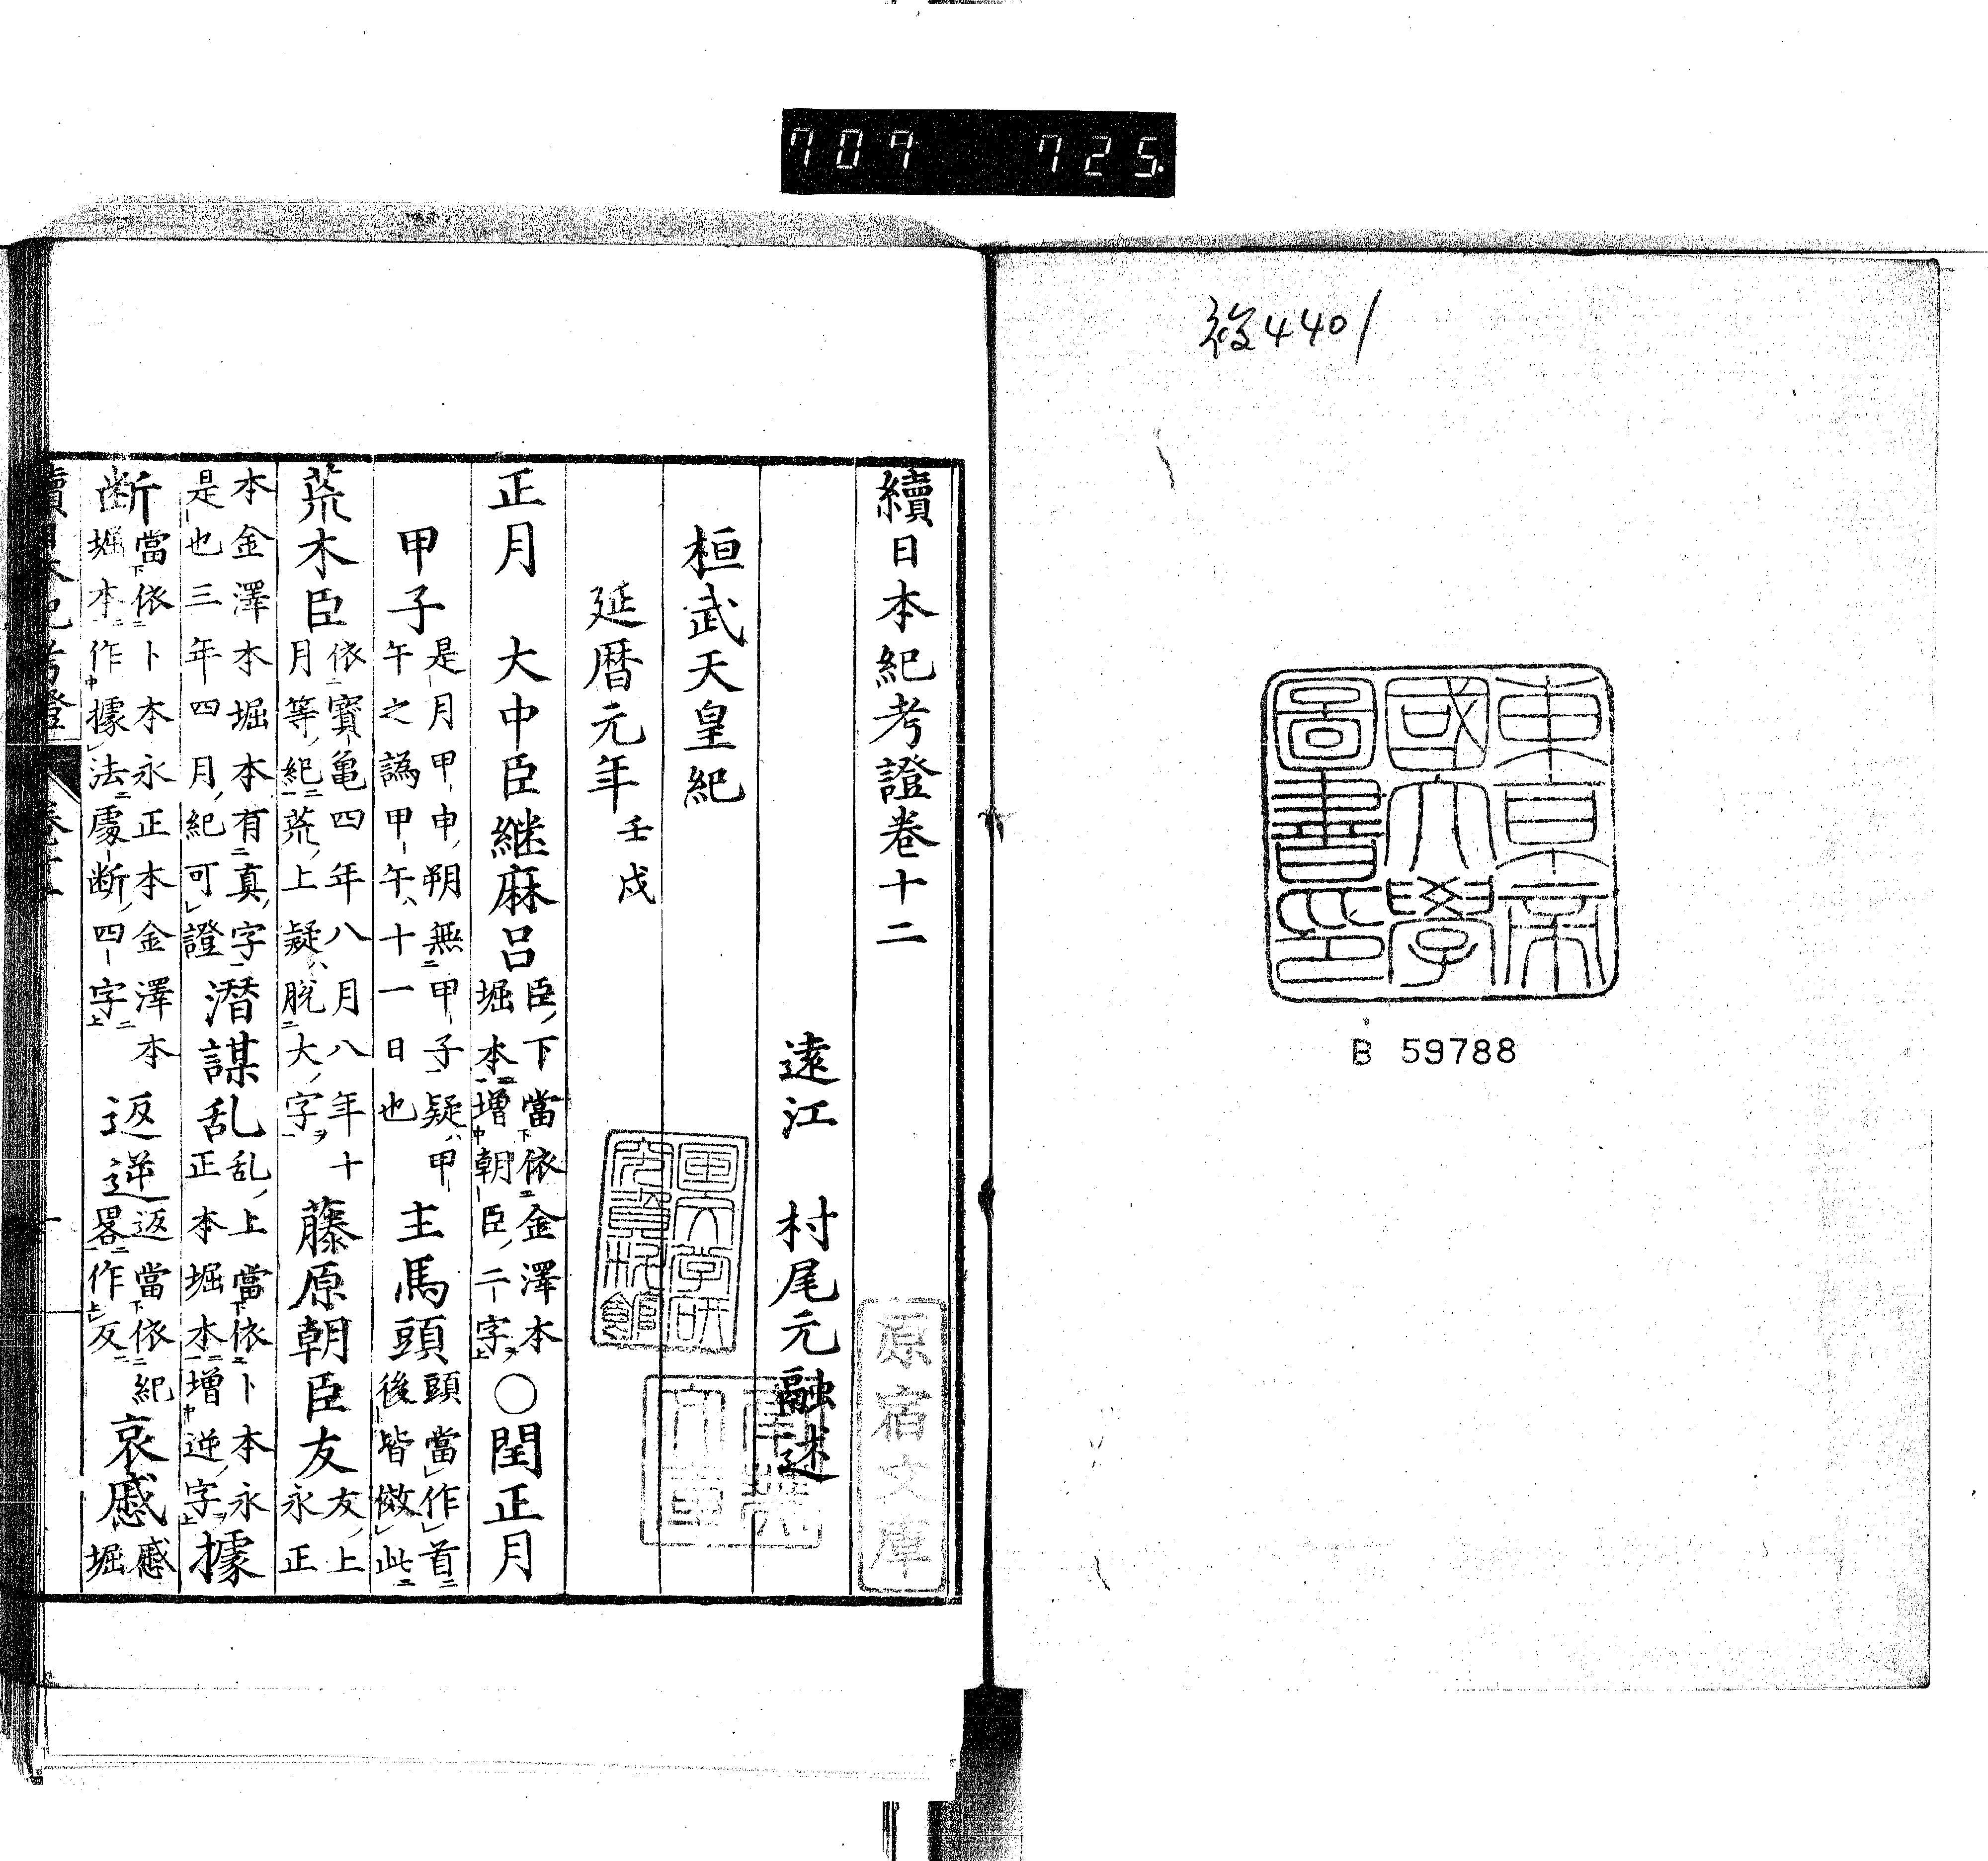 709 725
後4401
東京帝
國大學
圖書印
B 59788
續日本紀考證卷十二
遠江 村尾元融述
桓武天皇紀
延暦元年 壬戌
正月 大中臣継麻呂 臣、下當依金澤本堀本増朝臣、二字 ○閏正月
甲子 是月甲申、朔無甲子疑ハ甲午之譌甲午、十一日也 主馬頭 頭當作首後皆倣此
荒木臣 依寶亀四年八月八年十月等、紀荒、上疑ハ脱大、字ヲ 藤原朝臣友 友、上永正
本金澤本堀本有真、字是也三年四月、紀可證 潛謀乱 乱、上當依卜本永正本堀本増逆、字ヲ 據
断 當依卜本永正本金澤本堀本作據法處断、四字 返逆 返當依紀畧作反 哀慼 慼堀
原宿文庫